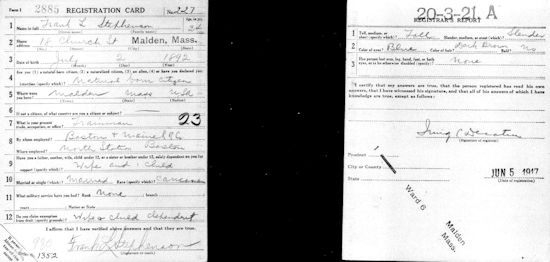 Form 1 2885 REGISTRATION CARD No. 227
Age, in yrs.
1 Name in full Frank L Stephenson 24
2 Home address 18 Church St Malden, Mass.
3 Date of birth July 2 1892
4 Are you (1) a natural born citizen, (2) a naturalized citizen, (3) an alien, (4) or have you declared your intention (specify which)? Natural born citizen
5 Where were you born? Malden Mass USA
6 If not a citizen, of what country are you a citizen or subject?
7 What is your present trade, occupation, or office? Trainman 23
8 By whom employed? Boston & Maine RR
Where employed? North Station Boston
9 Have you a father, mother, wife, child under 12, or a sister or brother under 12, solely dependent on you for support (specify which)? Wife and 1 child
10 Married or single (which)? Married Race (specify which)? Caucasian
11 What military service have you had? Rank None ; branch
years ; Nation or State
12 Do you claim exemption from draft (specify grounds)? Wife & child dependent
I affirm that I have verified above answers and that they are true.
Frank L Stephenson
(Signature or mark)
1352
20-3-21 A
REGISTRAR'S REPORT
1 Tall, medium, or short (specify which)? Tall Slender, medium, or stout (which)? Slender
2 Color of eyes? Blue Color of hair? Dark Brown Bald? No
3 Has person lost arm, leg, hand, foot, or both eyes, or is he otherwise disabled (specify)? None
I certify that my answers are true, that the person registered has read his own answers, that I have witnessed his signature, and that all of his answers of which I have knowledge are true, except as follows:
(Signature of registrar)
Precinct
City or County
State
JUN 5 1917
(Date of registration)
Ward 6
Malden
Mass.